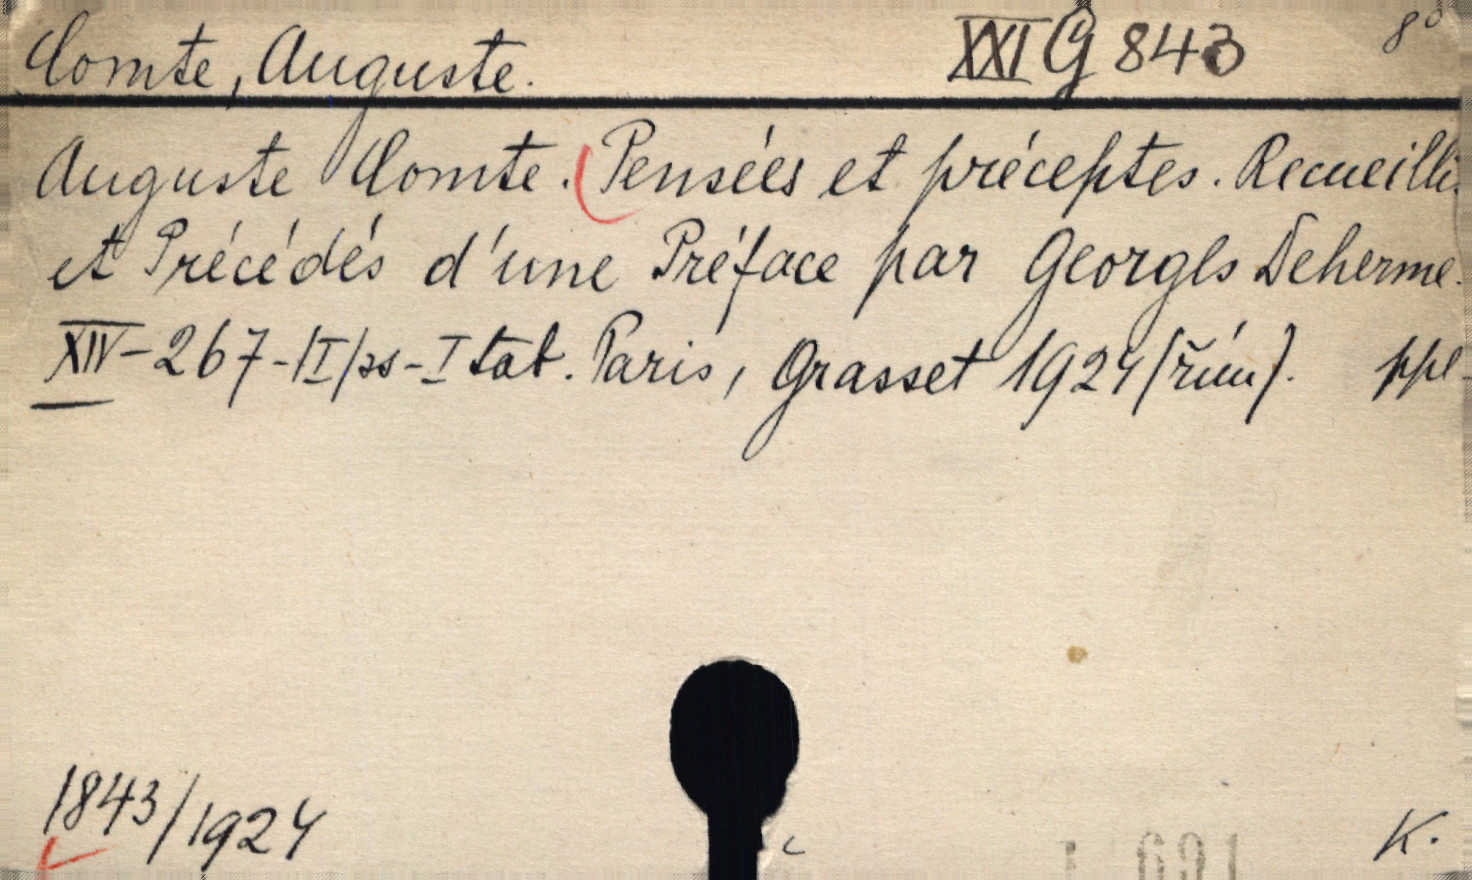 Comte, Auguste. XXI G 843 8°
Auguste Comte. Pensées et préceptes. Recueillis
et Précédés d'une Préface par Georges Deherme.
XIV-267-|I|ss-I tab. Paris, Grasset 1924 (říj). ppl
1843/1924 K.